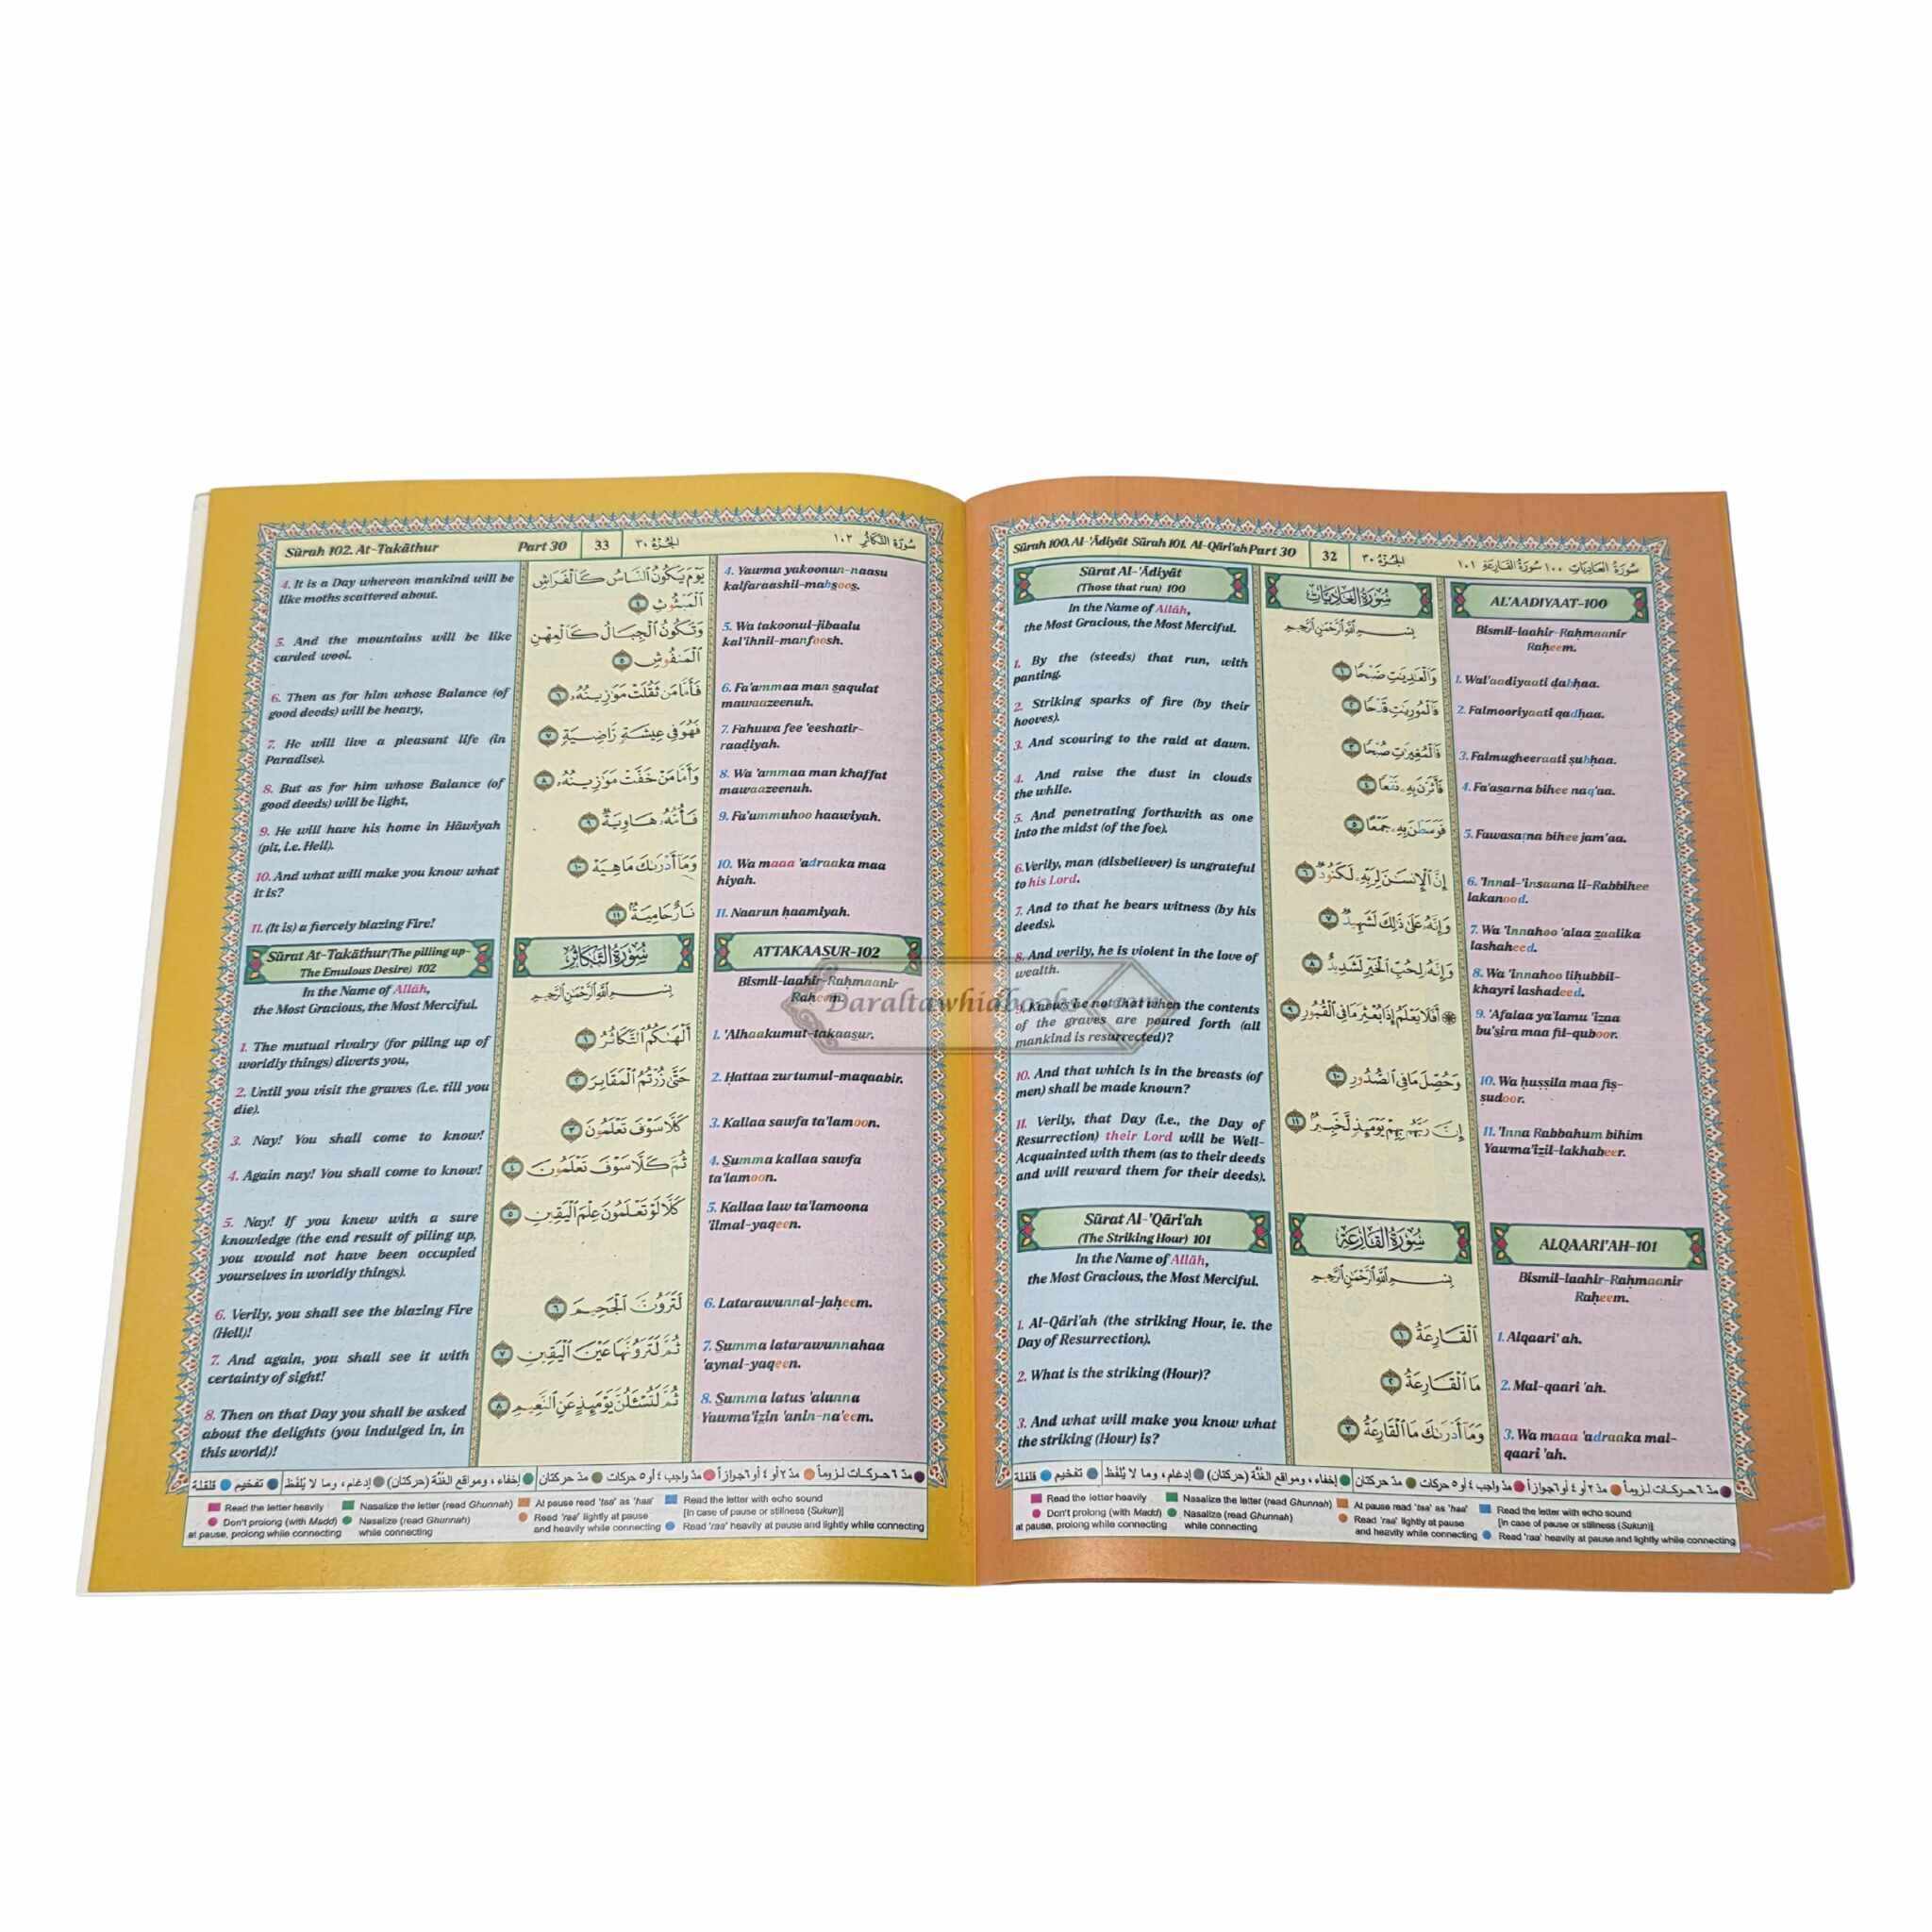 Sūrah 102. At-Takāthur Part 30 33 الجزء ٣٠ سورة التكاثر ١٠٢
4. It is a Day whereon mankind will be
like moths scattered about.
5. And the mountains will be like
carded wool.
6. Then as for him whose Balance (of
good deeds) will be heavy,
7. He will live a pleasant life (in
Paradise).
8. But as for him whose Balance (of
good deeds) will be light,
9. He will have his home in Hāwiyah
(pit, i.e. Hell).
10. And what will make you know what
it is?
11. (It is) a fiercely blazing Fire!
Sūrat At-Takāthur (The pilling up-
The Emulous Desire) 102
In the Name of Allāh,
the Most Gracious, the Most Merciful.
1. The mutual rivalry (for piling up of
worldly things) diverts you,
2. Until you visit the graves (i.e. till you
die).
3. Nay! You shall come to know!
4. Again nay! You shall come to know!
5. Nay! If you knew with a sure
knowledge (the end result of piling up,
you would not have been occupied
yourselves in worldly things).
6. Verily, you shall see the blazing Fire
(Hell)!
7. And again, you shall see it with
certainty of sight!
8. Then on that Day you shall be asked
about the delights (you indulged in, in
this world)!
يَوْمَ يَكُونُ ٱلنَّاسُ كَٱلْفَرَاشِ
ٱلْمَبْثُوثِ ٤
وَتَكُونُ ٱلْجِبَالُ كَٱلْعِهْنِ
ٱلْمَنفُوشِ ٥
فَأَمَّا مَن ثَقُلَتْ مَوَٰزِينُهُۥ ٦
فَهُوَ فِى عِيشَةٍ رَّاضِيَةٍ ٧
وَأَمَّا مَنْ خَفَّتْ مَوَٰزِينُهُۥ ٨
فَأُمُّهُۥ هَاوِيَةٌ ٩
وَمَآ أَدْرَىٰكَ مَا هِيَهْ ١٠
نَارٌ حَامِيَةٌۢ ١١
سُورَةُ التَّكَاثُرِ
بِسْمِ ٱللَّهِ ٱلرَّحْمَٰنِ ٱلرَّحِيمِ
أَلْهَىٰكُمُ ٱلتَّكَاثُرُ ١
حَتَّىٰ زُرْتُمُ ٱلْمَقَابِرَ ٢
كَلَّا سَوْفَ تَعْلَمُونَ ٣
ثُمَّ كَلَّا سَوْفَ تَعْلَمُونَ ٤
كَلَّا لَوْ تَعْلَمُونَ عِلْمَ ٱلْيَقِينِ ٥
لَتَرَوُنَّ ٱلْجَحِيمَ ٦
ثُمَّ لَتَرَوُنَّهَا عَيْنَ ٱلْيَقِينِ ٧
ثُمَّ لَتُسْـَٔلُنَّ يَوْمَئِذٍ عَنِ ٱلنَّعِيمِ ٨
4. Yawma yakoonun-naasu
kalfaraashil-mabsoos.
5. Wa takoonul-jibaalu
kal'ihnil-manfoosh.
6. Fa'ammaa man saqulat
mawaazeenuh.
7. Fahuwa fee 'eeshatir-
raaḍiyah.
8. Wa 'ammaa man khaffat
mawaazeenuh.
9. Fa'ummuhoo haawiyah.
10. Wa maaa 'adraaka maa
hiyah.
11. Naarun ḥaamiyah.
ATTAKAASUR-102
Bismil-laahir-Raḥmaanir
Raḥeem.
1. 'Alhaakumut-takaasur.
2. Ḥattaa zurtumul-maqaabir.
3. Kallaa sawfa ta'lamoon.
4. Summa kallaa sawfa
ta'lamoon.
5. Kallaa law ta'lamoona
'ilmal-yaqeen.
6. Latarawunnal-jaḥeem.
7. Summa latarawunnahaa
'aynal-yaqeen.
8. Summa latus 'alunna
Yawma'izin 'anin-na'eem.
مدّ ٦ حركات لزوماً مدّ ٢ أو ٤ أو ٦ جوازاً مدّ واجب ٤ أو ٥ حركات مدّ حركتان إخفاء، ومواقع الغُنَّة (حركتان) إدغام، وما لا يُلفَظ تفخيم قلقلة
Read the letter heavily Nasalize the letter (read Ghunnah) At pause read 'taa' as 'haa' Read the letter with echo sound
[in case of pause or stillness (Sukun)]
Don't prolong (with Madd) Nasalize (read Ghunnah) Read 'raa' lightly at pause
at pause, prolong while connecting while connecting and heavily while connecting Read 'raa' heavily at pause and lightly while connecting
Sūrah 100. Al-'Ādiyāt Sūrah 101. Al-Qāri'ah Part 30 32 الجزء ٣٠ سورة العاديات ١٠٠ سورة القارعة ١٠١
Sūrat Al-'Ādiyāt
(Those that run) 100
In the Name of Allāh,
the Most Gracious, the Most Merciful.
1. By the (steeds) that run, with
panting.
2. Striking sparks of fire (by their
hooves).
3. And scouring to the raid at dawn.
4. And raise the dust in clouds
the while.
5. And penetrating forthwith as one
into the midst (of the foe).
6. Verily, man (disbeliever) is ungrateful
to his Lord.
7. And to that he bears witness (by his
deeds).
8. And verily, he is violent in the love of
wealth.
9. Knows he not that when the contents
of the graves are poured forth (all
mankind is resurrected)?
10. And that which is in the breasts (of
men) shall be made known?
11. Verily, that Day (i.e., the Day of
Resurrection) their Lord will be Well-
Acquainted with them (as to their deeds
and will reward them for their deeds).
Sūrat Al-'Qāri'ah
(The Striking Hour) 101
In the Name of Allāh,
the Most Gracious, the Most Merciful.
1. Al-Qāri'ah (the striking Hour, ie. the
Day of Resurrection).
2. What is the striking (Hour)?
3. And what will make you know what
the striking (Hour) is?
سُورَةُ العَادِيَاتِ
بِسْمِ ٱللَّهِ ٱلرَّحْمَٰنِ ٱلرَّحِيمِ
وَٱلْعَٰدِيَٰتِ ضَبْحًا ١
فَٱلْمُورِيَٰتِ قَدْحًا ٢
فَٱلْمُغِيرَٰتِ صُبْحًا ٣
فَأَثَرْنَ بِهِۦ نَقْعًا ٤
فَوَسَطْنَ بِهِۦ جَمْعًا ٥
إِنَّ ٱلْإِنسَٰنَ لِرَبِّهِۦ لَكَنُودٌ ٦
وَإِنَّهُۥ عَلَىٰ ذَٰلِكَ لَشَهِيدٌ ٧
وَإِنَّهُۥ لِحُبِّ ٱلْخَيْرِ لَشَدِيدٌ ٨
۞ أَفَلَا يَعْلَمُ إِذَا بُعْثِرَ مَا فِى ٱلْقُبُورِ ٩
وَحُصِّلَ مَا فِى ٱلصُّدُورِ ١٠
إِنَّ رَبَّهُم بِهِمْ يَوْمَئِذٍ لَّخَبِيرٌۢ ١١
سُورَةُ القَارِعَةِ
بِسْمِ ٱللَّهِ ٱلرَّحْمَٰنِ ٱلرَّحِيمِ
ٱلْقَارِعَةُ ١
مَا ٱلْقَارِعَةُ ٢
وَمَآ أَدْرَىٰكَ مَا ٱلْقَارِعَةُ ٣
AL'AADIYAAT-100
Bismil-laahir-Raḥmaanir
Raḥeem.
1. Wal'aadiyaati ḍabḥaa.
2. Falmooriyaati qadḥaa.
3. Falmugheeraati ṣubḥaa.
4. Fa'asarna bihee naq'aa.
5. Fawasaṭna bihee jam'aa.
6. 'Innal-'insaana li-Rabbihee
lakanood.
7. Wa 'innahoo 'alaa zaalika
lashaheed.
8. Wa 'innahoo liḥubbil-
khayri lashadeed.
9. 'Afalaa ya'lamu 'izaa
bu'sira maa fil-quboor.
10. Wa ḥuṣṣila maa fiṣ-
ṣudoor.
11. 'Inna Rabbahum bihim
Yawma'izil-lakhabeer.
ALQAARI'AH-101
Bismil-laahir-Raḥmaanir
Raḥeem.
1. Alqaari' ah.
2. Mal-qaari 'ah.
3. Wa maaa 'adraaka mal-
qaari 'ah.
مدّ ٦ حركات لزوماً مدّ ٢ أو ٤ أو ٦ جوازاً مدّ واجب ٤ أو ٥ حركات مدّ حركتان إخفاء، ومواقع الغُنَّة (حركتان) إدغام، وما لا يُلفَظ تفخيم قلقلة
Read the letter heavily Nasalize the letter (read Ghunnah) At pause read 'taa' as 'haa' Read the letter with echo sound
[in case of pause or stillness (Sukun)]
Don't prolong (with Madd) Nasalize (read Ghunnah) Read 'raa' lightly at pause
at pause, prolong while connecting while connecting and heavily while connecting Read 'raa' heavily at pause and lightly while connecting
Daraltawhidbooks.com